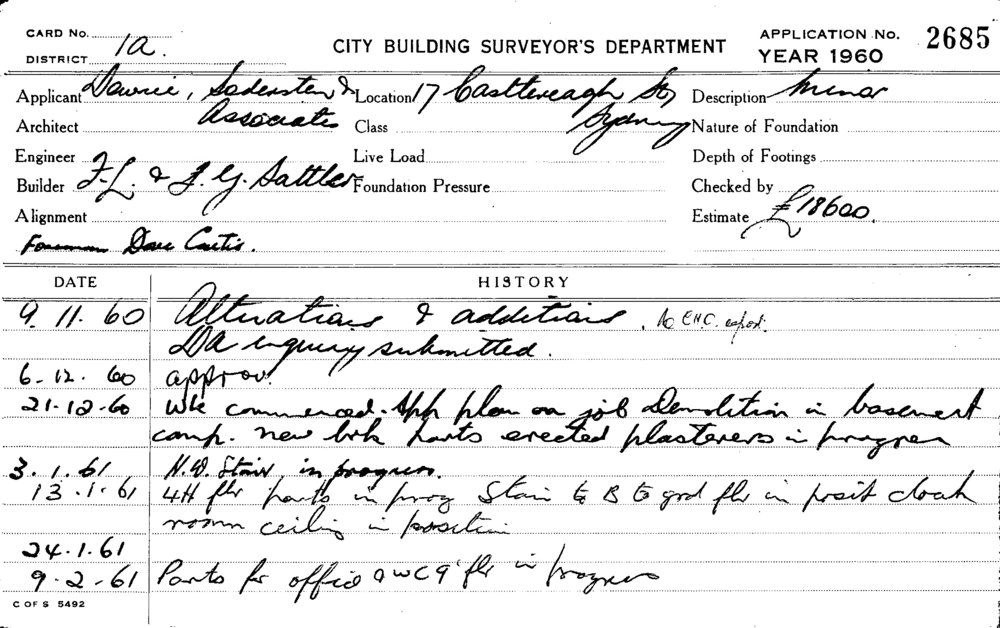 CARD NO. 1a.
DISTRICT
CITY BUILDING SURVEYOR'S DEPARTMENT
APPLICATION NO. 2685
YEAR 1960
Applicant Dowrie, Sodersten & Associates
Location 17 Castlereagh St, Sydney
Description Minor
Architect
Class
Nature of Foundation
Engineer
Live Load
Depth of Footings
Builder F.L. & J.G. Sattler
Foundation Pressure
Checked by
Alignment
Estimate £18600.
Foreman Dave Curtis.
DATE HISTORY
9.11.60 Alterations & additions. to C.H.C. report.
DA inquiry submitted.
6-12.60 approv.
21-12-60 Wk commenced. App plan on job Demolition in basement
comp. new brk parts erected plasterers in progress
3.1.61 N.W. Stair in progress.
13.1.61 4H flr parts in prog Stair to B to grd flr in posit cloak
room ceiling in position
24.1.61
9-2-61 Parts for office & WC 9' flr in progress
C OF S 5492